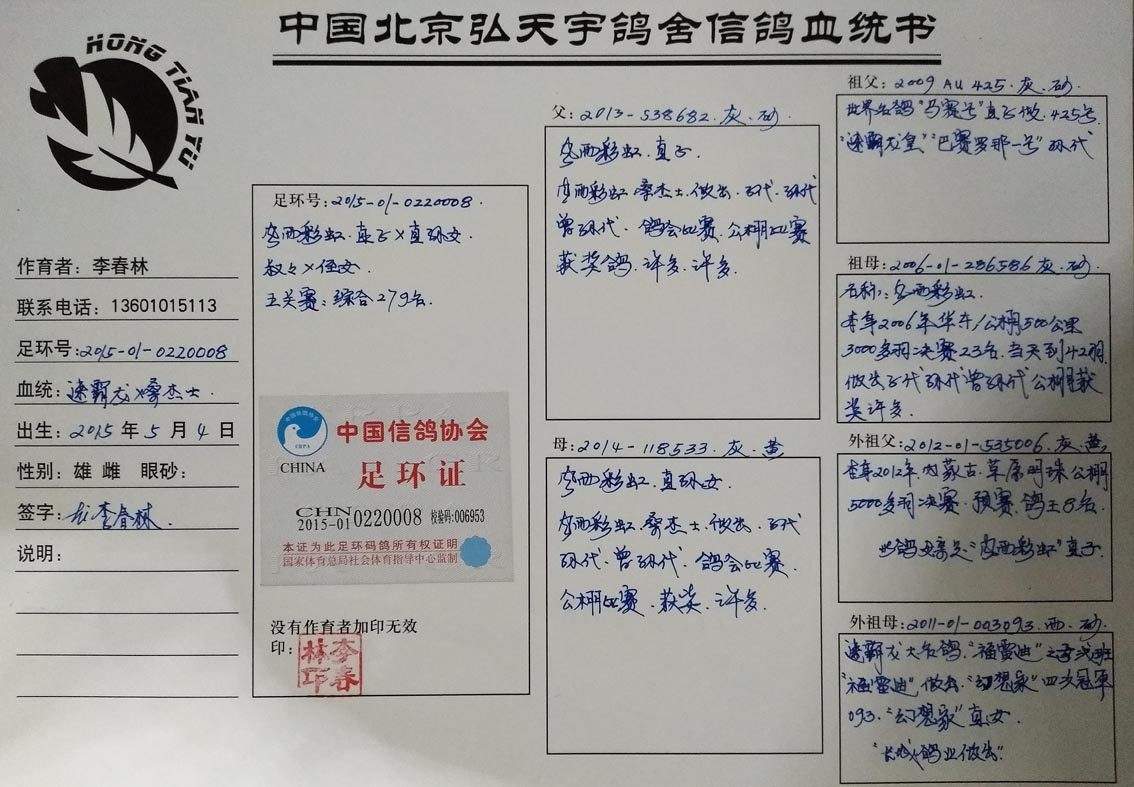 中国北京弘天宇鸽舍信鸽血统书
HONG TIAN YU
作育者：李春林
联系电话：13601015113
足环号:2015-01-0220008
血统:速霸龙×桑杰士.
出生：2015年5月4日
性别：雄 雌 眼砂：
签字：李春林.
说明：
足环号:2015-01-0220008.
西彩虹.直子×直孙女.
叔々×侄女.
王关赛:综合279名.
CRPA
CHINA
中国信鸽协会
足环证
CHN
2015-010220008 校验码:006953
本证为此足环码鸽所有权证明
国家体育总局社会体育指导中心监制
没有作育者加印无效
印:
李春林印
父:2013-538682.灰.砂.
西彩虹.直子.
西彩虹.桑杰士.做出.子代.孙代
曾孙代.鸽会比赛.公棚比赛
获奖鸽.许多.许多.
母:2014-118533.灰.黄
西彩虹.直孙女.
西彩虹.桑杰士.做出.子代
孙代.曾孙代.鸽会比赛.
公棚比赛.获奖.许多.
祖父:2009 AU 425.灰.砂.
世界名鸽"马赛号"直子做.425号.
"速霸龙皇""巴赛罗那一号"孙代
祖母:2006-01-286586灰.砂.
名称:西彩虹.
本身2006年华东/公棚500公里
3000多羽决赛23名.当天到42羽.
做出子代孙代曾孙代公棚获
奖许多.
外祖父:2012-01-535006.灰.黄.
本身2012年.内蒙古.草原明珠公棚
5000多羽决赛.预赛.鸽王8名.
此鸽母亲是"西彩虹"直子.
外祖母:2011-01-003093.雨.砂.
速霸龙大名鸽."福雷迪"之
"福雷迪".做出."幻想家"四次冠军
093."幻想家"直女.
"长城鸽业做出."